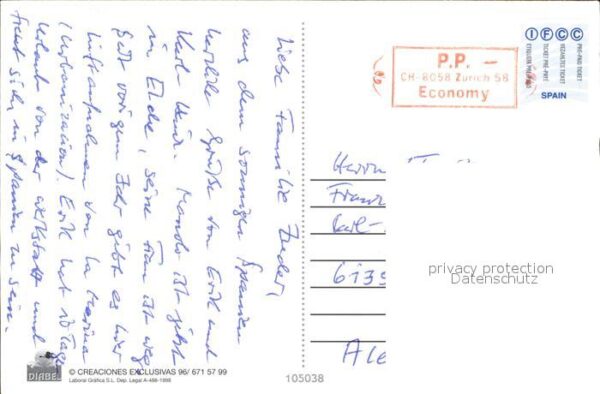 Liebe Familie
aus dem sonnigen Spanien
herzliche Grüße von Erik und
ist jetzt
in Elche, seine Frau ist weg.
Seit vorigem Jahr gibt es hier
Luftaufnahmen von La Marina
(Urbanizacion). Erik hat 10 Tage
Urlaub von der Werkstatt und
freut sich, in Spanien zu sein.
P.P. –
CH-8058 Zürich 58
Economy
I F C C
PRE-PAID TICKET
TICKET PRE-PAYE
SPAIN
Herrn
Franz
Karl-
6135
Ale
privacy protection
Datenschutz
DIABEL
© CREACIONES EXCLUSIVAS 96/ 671 57 99
Laboral Gráfica S.L. Dep. Legal A-498-1998
105038